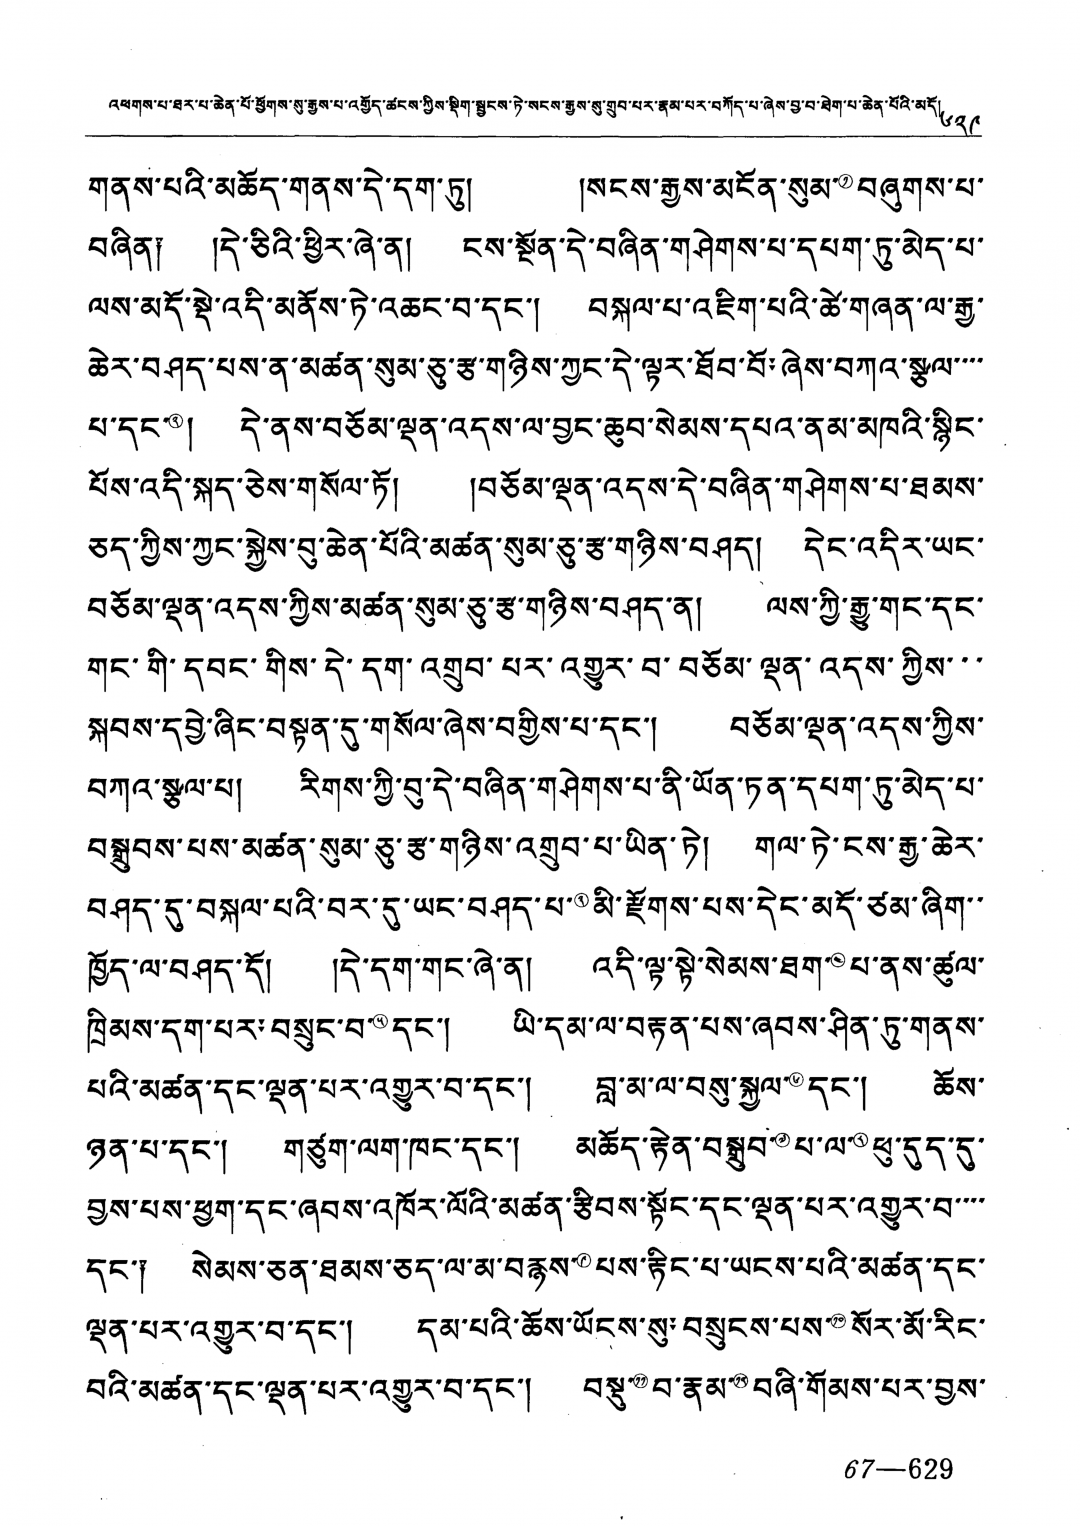 འཕགས་པ་ཐར་པ་ཆེན་པོ་ཕྱོགས་སུ་རྒྱས་པ་འགྱོད་ཚངས་ཀྱིས་སྡིག་སྦྱངས་ཏེ་སངས་རྒྱས་སུ་གྲུབ་པར་རྣམ་པར་བཀོད་པ་ཞེས་བྱ་བ་ཐེག་པ་ཆེན་པོའི་མདོ། ༦༢༩
གནས་པའི་མཆོད་གནས་དེ་དག་ཏུ། །སངས་རྒྱས་མངོན་སུམ་①བཞུགས་པ་
བཞིན༑ །དེ་ཅིའི་ཕྱིར་ཞེ་ན། ངས་སྔོན་དེ་བཞིན་གཤེགས་པ་དཔག་ཏུ་མེད་པ་
ལས་མདོ་སྡེ་འདི་མནོས་ཏེ་འཆང་བ་དང་། བསྐལ་པ་འཇིག་པའི་ཚེ་གཞན་ལ་རྒྱ་
ཆེར་བཤད་པས་ན་མཚན་སུམ་ཅུ་རྩ་གཉིས་ཀྱང་དེ་ལྟར་ཐོབ་བོ༔ཞེས་བཀའ་སྩལ་
པ་དང་②། དེ་ནས་བཅོམ་ལྡན་འདས་ལ་བྱང་ཆུབ་སེམས་དཔའ་ནམ་མཁའི་སྙིང་
པོས་འདི་སྐད་ཅེས་གསོལ་ཏོ། །བཅོམ་ལྡན་འདས་དེ་བཞིན་གཤེགས་པ་ཐམས་
ཅད་ཀྱིས་ཀྱང་སྐྱེས་བུ་ཆེན་པོའི་མཚན་སུམ་ཅུ་རྩ་གཉིས་བཤད། དེང་འདིར་ཡང་
བཅོམ་ལྡན་འདས་ཀྱིས་མཚན་སུམ་ཅུ་རྩ་གཉིས་བཤད་ན། ལས་ཀྱི་རྒྱུ་གང་དང་
གང་གི་དབང་གིས་དེ་དག་འགྲུབ་པར་འགྱུར་བ་བཅོམ་ལྡན་འདས་ཀྱིས་
སྐབས་དབྱེ་ཞིང་བསྟན་དུ་གསོལ་ཞེས་བགྱིས་པ་དང་། བཅོམ་ལྡན་འདས་ཀྱིས་
བཀའ་སྩལ་པ། རིགས་ཀྱི་བུ་དེ་བཞིན་གཤེགས་པ་ནི་ཡོན་ཏན་དཔག་ཏུ་མེད་པ་
བསྒྲུབས་པས་མཚན་སུམ་ཅུ་རྩ་གཉིས་འགྲུབ་པ་ཡིན་ཏེ། གལ་ཏེ་ངས་རྒྱ་ཆེར་
བཤད་དུ་བསྐལ་པའི་བར་དུ་ཡང་བཤད་པ་③མི་རྫོགས་པས་དེང་མདོ་ཙམ་ཞིག་
ཁྱོད་ལ་བཤད་དོ། །དེ་དག་གང་ཞེ་ན། འདི་ལྟ་སྟེ་སེམས་ཐག་④པ་ནས་ཚུལ་
ཁྲིམས་དག་པར༔བསྲུང་བ་⑤དང་། ཡི་དམ་ལ་བརྟན་པས་ཞབས་ཤིན་ཏུ་གནས་
པའི་མཚན་དང་ལྡན་པར་འགྱུར་བ་དང་། བླ་མ་ལ་བསུ་སྐྱལ་⑥དང་། ཆོས་
ཉན་པ་དང་། གཙུག་ལག་ཁང་དང་། མཆོད་རྟེན་བསྒྲུབ་⑦པ་ལ་⑧ཕུ་དུད་དུ་
བྱས་པས་ཕྱག་དང་ཞབས་འཁོར་ལོའི་མཚན་རྩིབས་སྟོང་དང་ལྡན་པར་འགྱུར་བ་
དང་༑ སེམས་ཅན་ཐམས་ཅད་ལ་མ་བརྙས་⑨པས་རྟིང་པ་ཡངས་པའི་མཚན་དང་
ལྡན་པར་འགྱུར་བ་དང་། དམ་པའི་ཆོས་ཡོངས་སུ༔བསྲུངས་པས་⑩སོར་མོ་རིང་
བའི་མཚན་དང་ལྡན་པར་འགྱུར་བ་དང་། བསྡུ་⑪བ་རྣམ་⑫བཞི་གོམས་པར་བྱས་
67—629